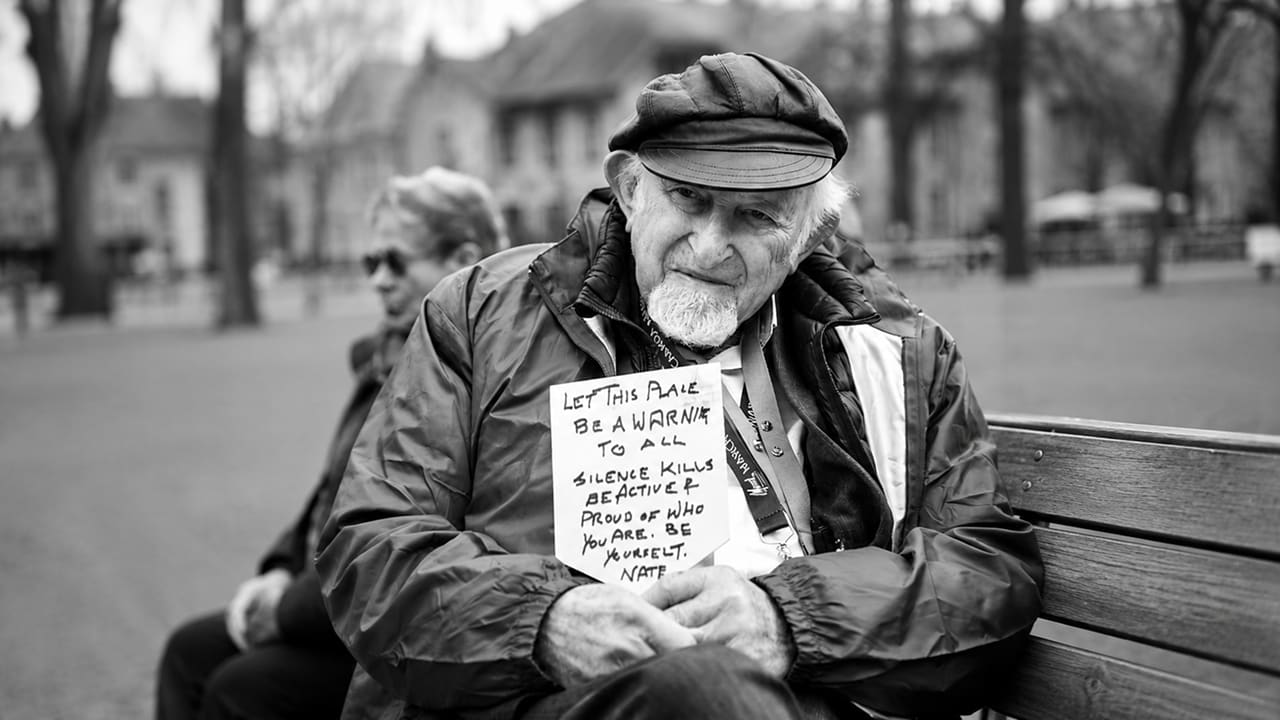 LET THIS PLACE
BE A WARNIG
TO ALL
SILENCE KILLS
BE ACTIVE &
PROUD OF WHO
YOU ARE. BE
YOURSELT.
NATE